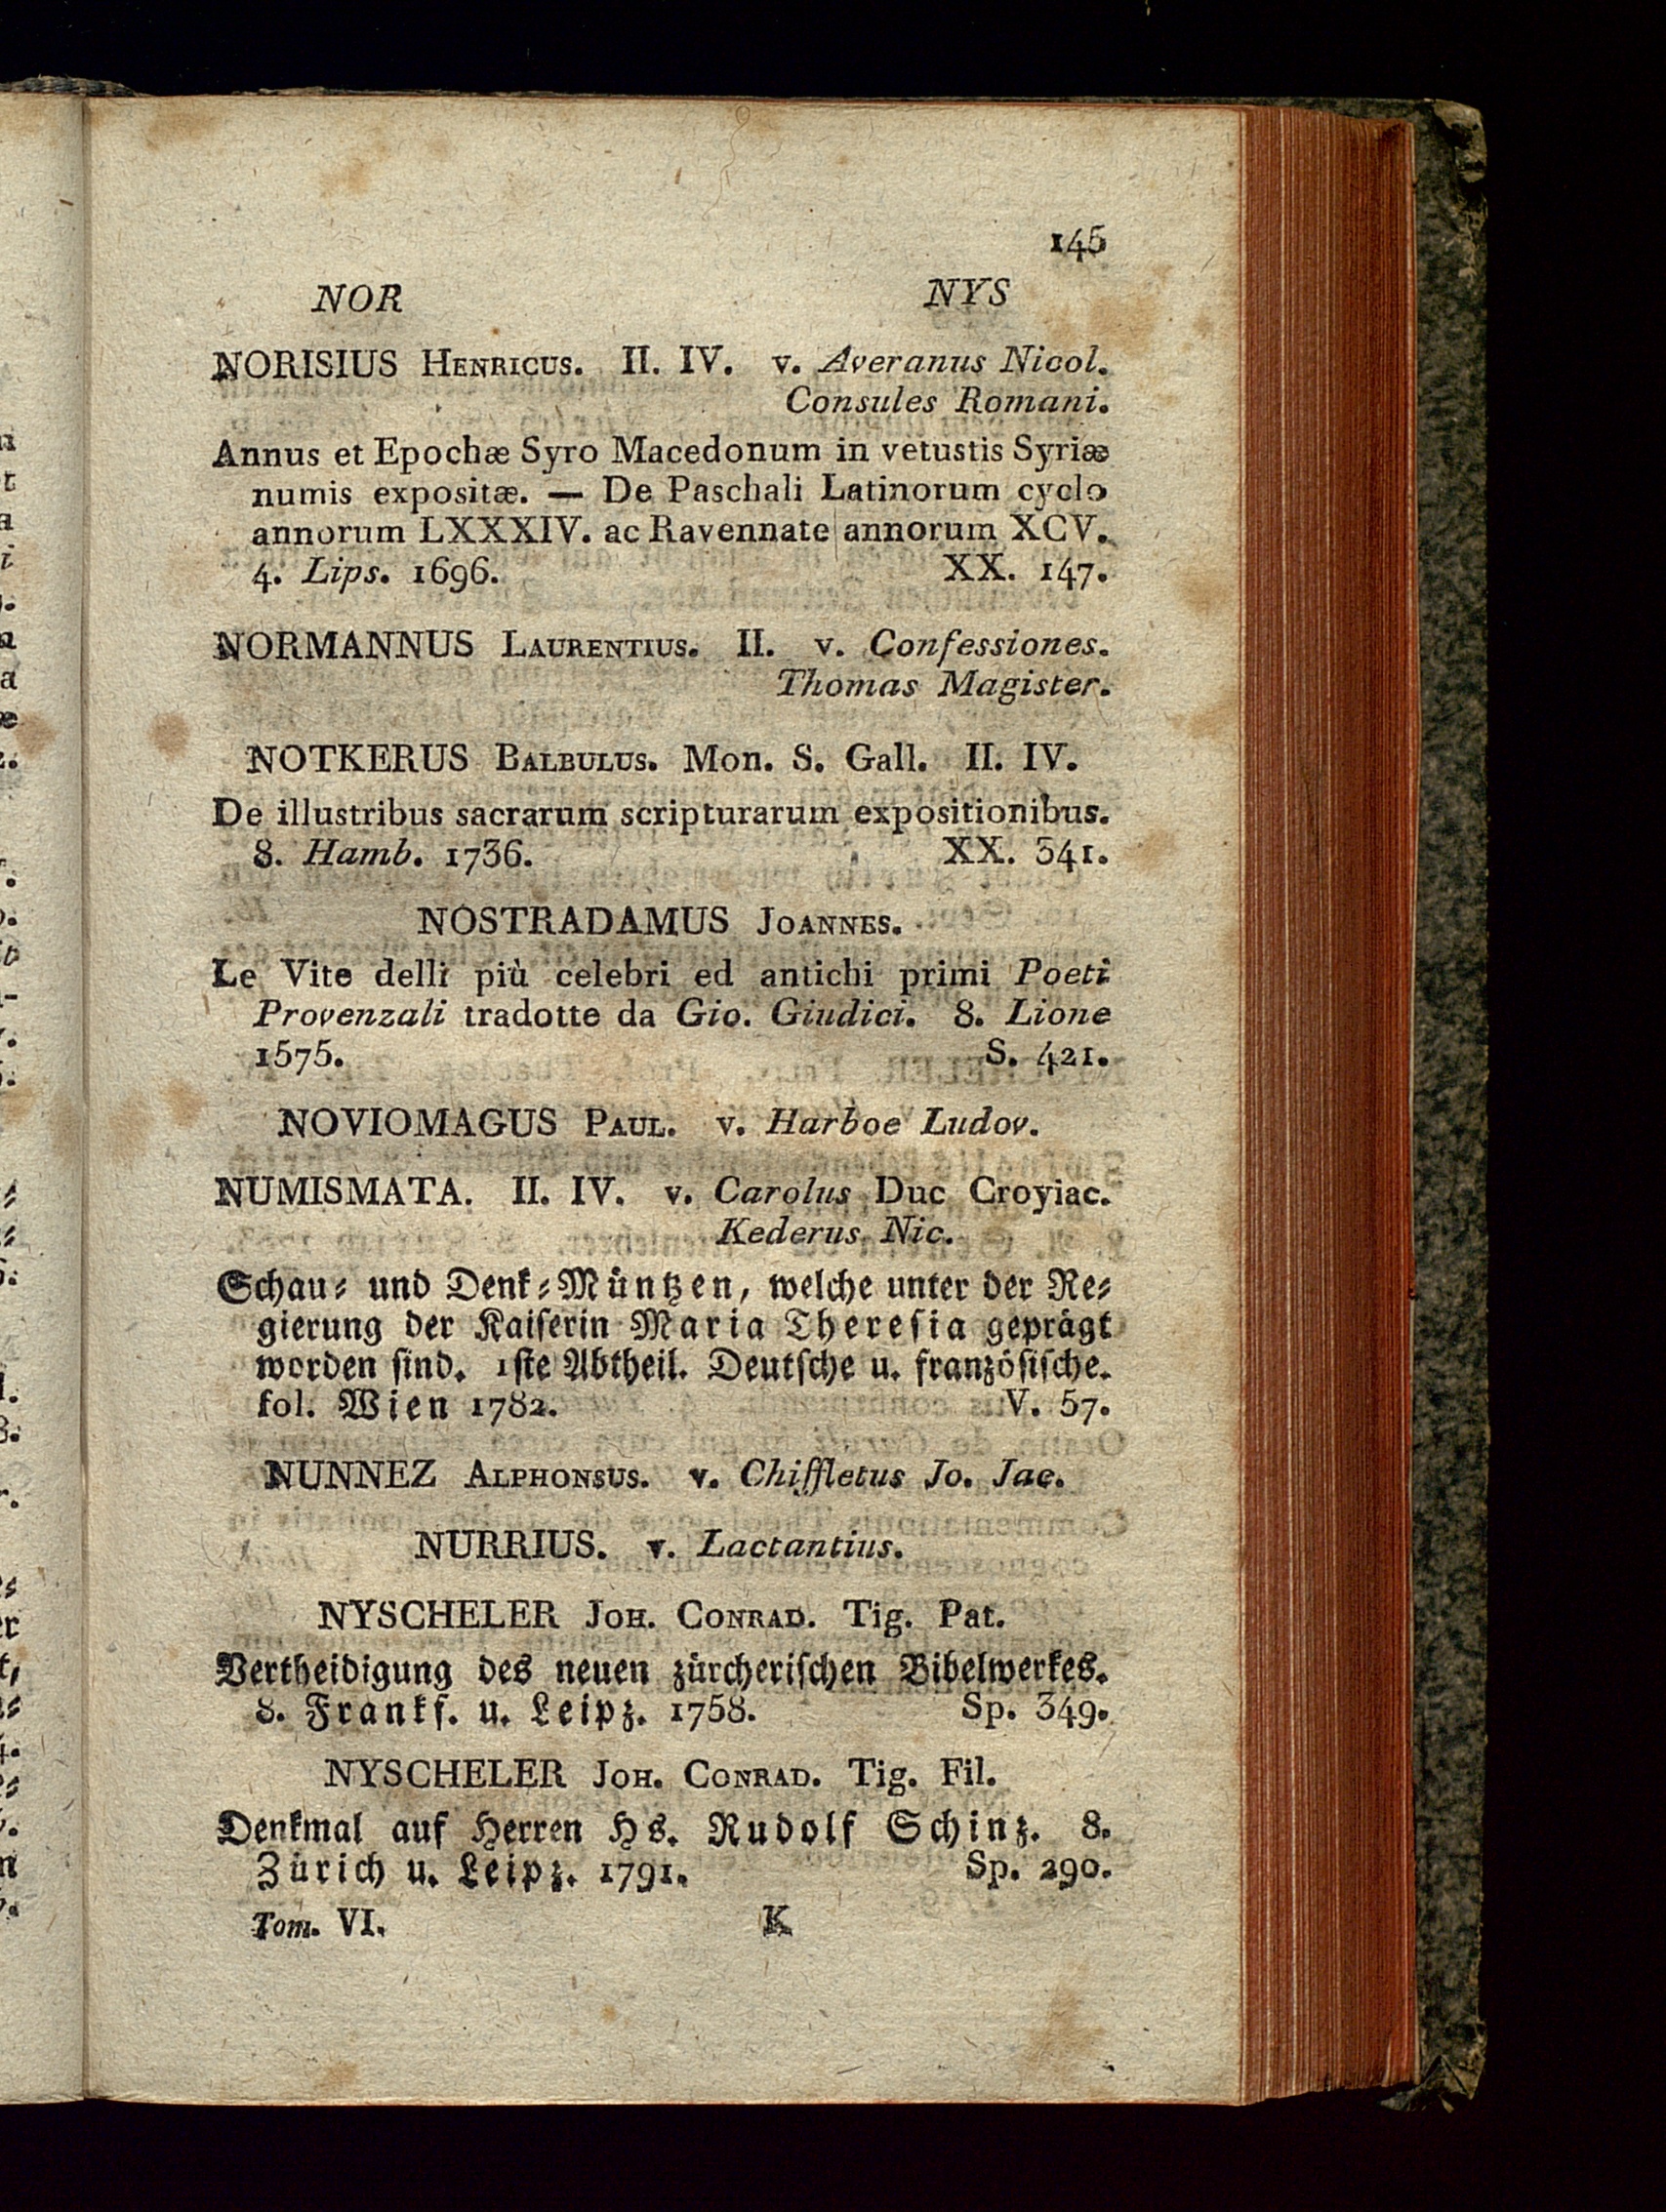 145
NOR NYS
NORISIUS HENRICUS. II. IV. v. Averanus Nicol.
Consules Romani.
Annus et Epochæ Syro Macedonum in vetustis Syriæ
numis expositæ. — De Paschali Latinorum cyclo
annorum LXXXIV. ac Ravennate annorum XCV.
4. Lips. 1696. XX. 147.
NORMANNUS LAURENTIUS. II. v. Confessiones.
Thomas Magister.
NOTKERUS BALBULUS. Mon. S. Gall. II. IV.
De illustribus sacrarum scripturarum expositionibus.
8. Hamb. 1736. XX. 341.
NOSTRADAMUS JOANNES.
Le Vite delli più celebri ed antichi primi Poeti
Provenzali tradotte da Gio. Giudici. 8. Lione
1575. S. 421.
NOVIOMAGUS PAUL. v. Harboe Ludov.
NUMISMATA. II. IV. v. Carolus Duc Croyiac.
Kederus Nic.
Schau- und Denk-Müntzen, welche unter der Re-
gierung der Kaiserin Maria Theresia geprägt
worden sind. 1ste Abtheil. Deutsche u. französische.
fol. Wien 1782. V. 57.
NUNNEZ ALPHONSUS. v. Chiffletus Jo. Jac.
NURRIUS. v. Lactantius.
NYSCHELER JOH. CONRAD. Tig. Pat.
Vertheidigung des neuen zürcherischen Bibelwerkes.
8. Frankf. u. Leipz. 1758. Sp. 349.
NYSCHELER JOH. CONRAD. Tig. Fil.
Denkmal auf Herren Hs. Rudolf Schinz. 8.
Zürich u. Leipz. 1791. Sp. 290.
Tom. VI. K